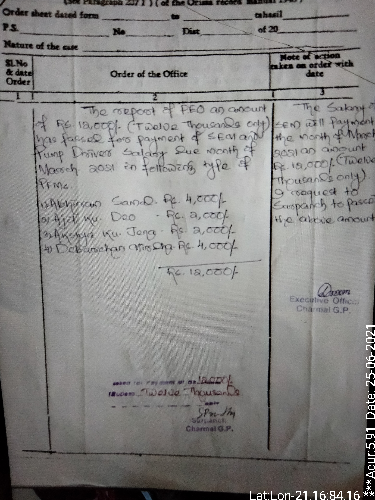 (See Paragraph 227 ) ( of the Orissa record Manual
Order sheet dated form to tahasil
P.S. No Dist. of 20
Nature of the case
Sl.No & date Order
Order of the Office
Note of action taken on order with date
1 2 3
The report of PEO an amount
of Rs. 12,000/- (Twelve Thousands only)
has for payment of SEM and
Pump Driver Salary Due month of
March 2021 in following type of
Rs. 4,000/-
Ku. Deo - Rs. 2,000/-
Ku. Jena - Rs. 2,000/-
Rs. 4,000/-
Rs. 12,000/-
The Salary
SEM will payment
the month of March
2021 an amount
Rs 12,000/- (Twelve
Thousands only).
a request to
Sarpanch to
the above amount
Executive Officer
Charmal G.P.
12,000/-
Twelve Thousands
Sarpanch
Charmal G.P.
Lat:Lon-21.16:84.16
***Acur:5.91 Date: 25-06-2021